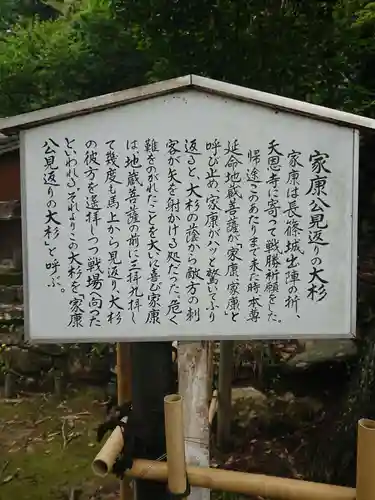 家康公見返りの大杉
家康は長篠城出陣の折、
天恩寺に寄って戦勝祈願をした
帰途このあたりまで来た時本尊
延命地蔵菩薩が「家康、家康と
呼び止め、家康がハッと驚いてふり
返ると、大杉の蔭から敵方の刺
客が矢を射かける処だった。危く
難をのがれたことを大いに喜び家康
は地蔵菩薩の前に三拝九拝し
て幾度も馬上から見返り、大杉
の彼方を遥拝しつつ戦場へ向った
といわれる。それよりこの大杉を、家康
公見返りの大杉」と呼ぶ。